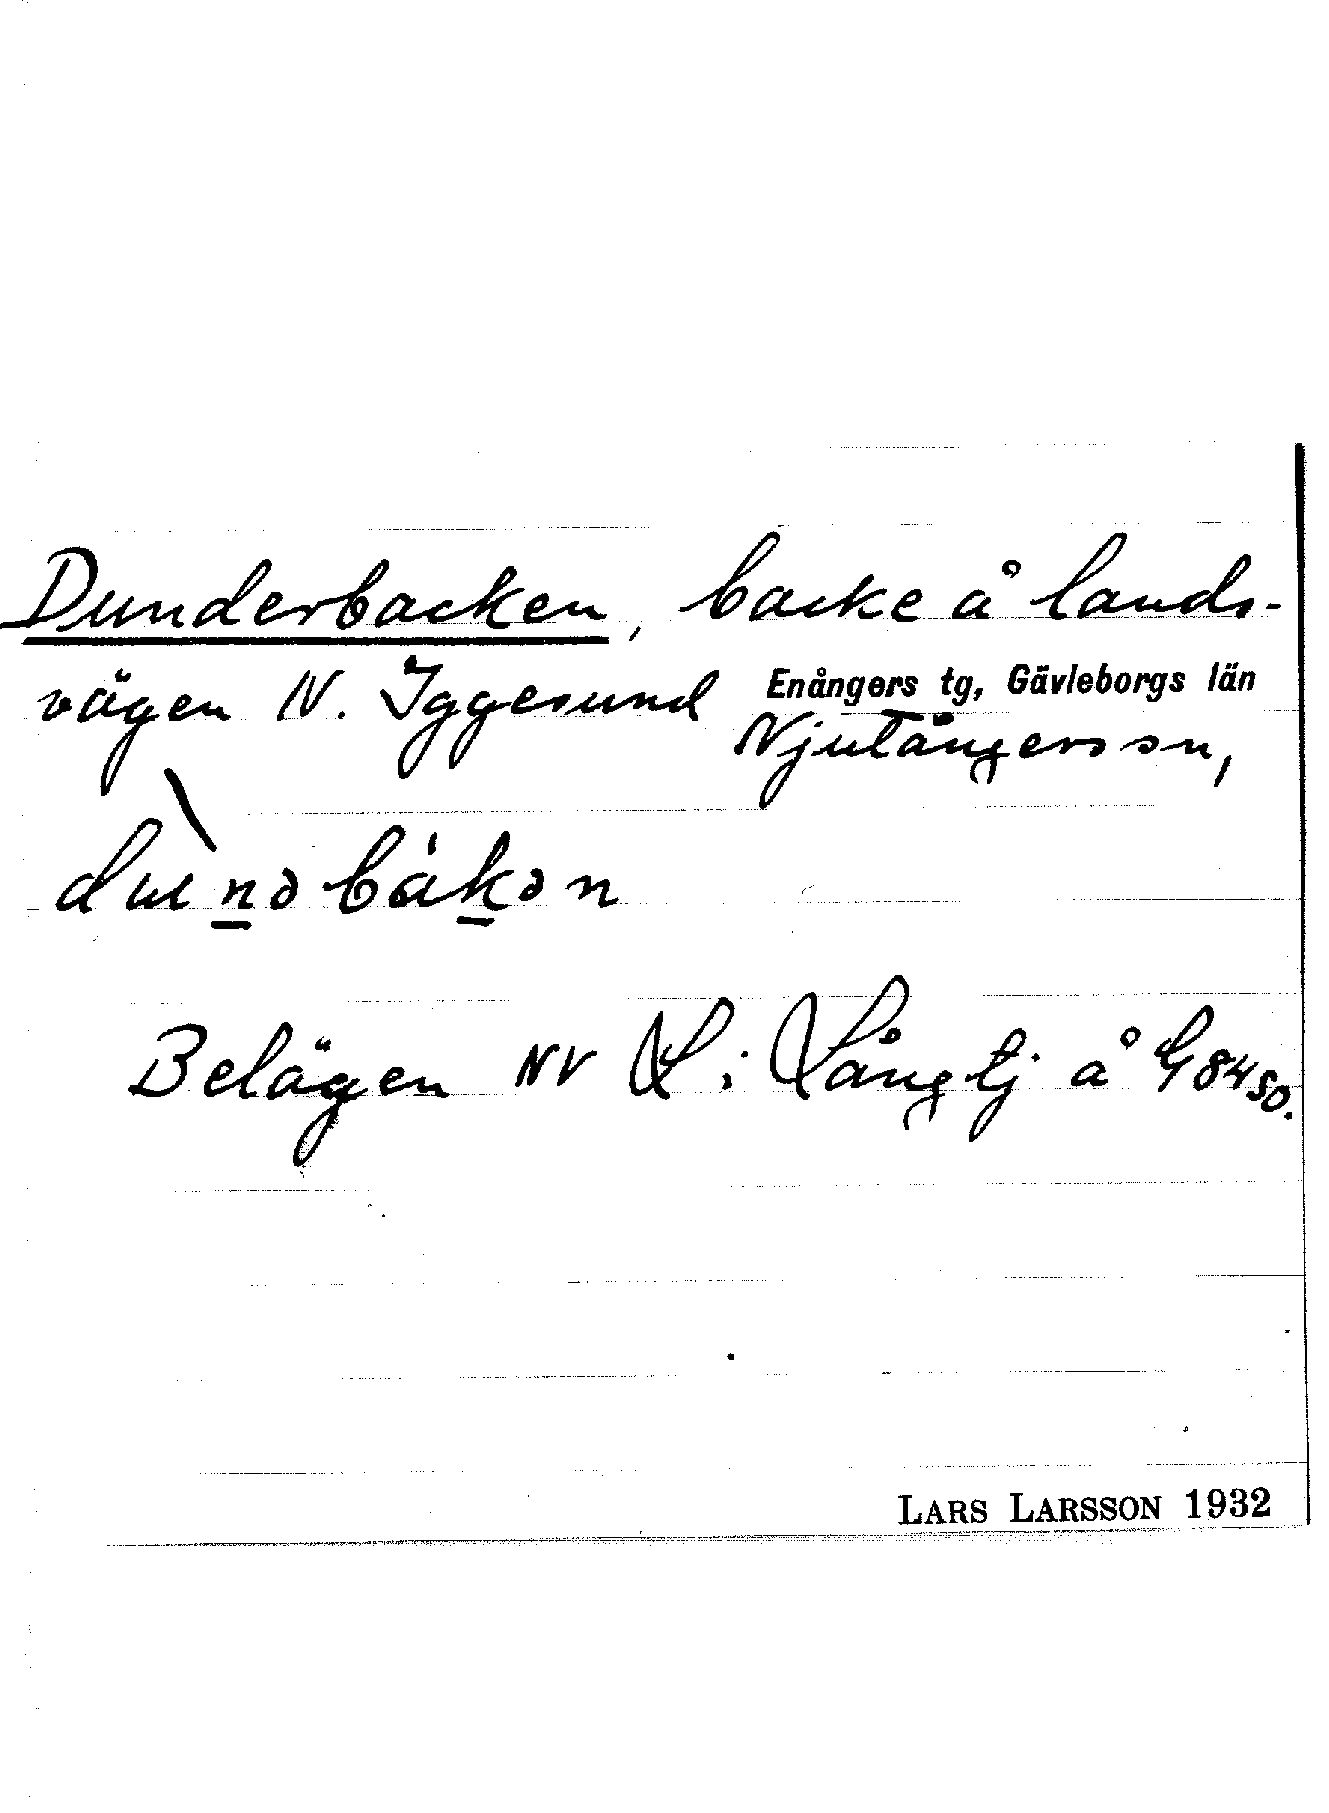 Dunderbacken, backe å lands-
vägen N. Iggesund
Enångers tg, Gävleborgs län
Njutångers sn,
dunəbákən
Belägen NV L i Långtj å G84SO.
LARS LARSSON 1932